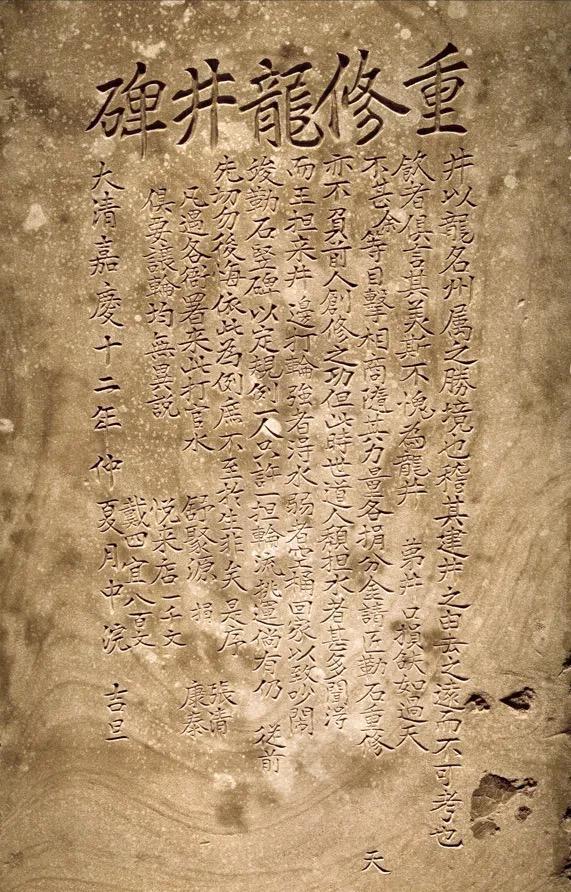 重修龍井碑
井以龍名州属之勝境也稽其建井之由去之遠而不可考也
飲者俱言其美斯不愧為龍井 苐井口損缺如過天
不甚 等目擊相商隨其力量各捐分金請匠勤石重修 天
亦不負前人創修之功但此時世道人頹担水者甚多闇
而王担来井邊打輪強者淂水弱者空桶回家以致吵閙
竣勤石竪碑以定規例一人只許一担輪流挑運倘有仍 従前
先切勿後海依此為例庶不至於生非矣是序 張清
凡遇各衙署来此打官水 舒聚源 捐 康泰
俱要議輪均無異説 悦来店一千文
戴四宜八百文
大清嘉慶十二年仲夏月中浣 吉旦